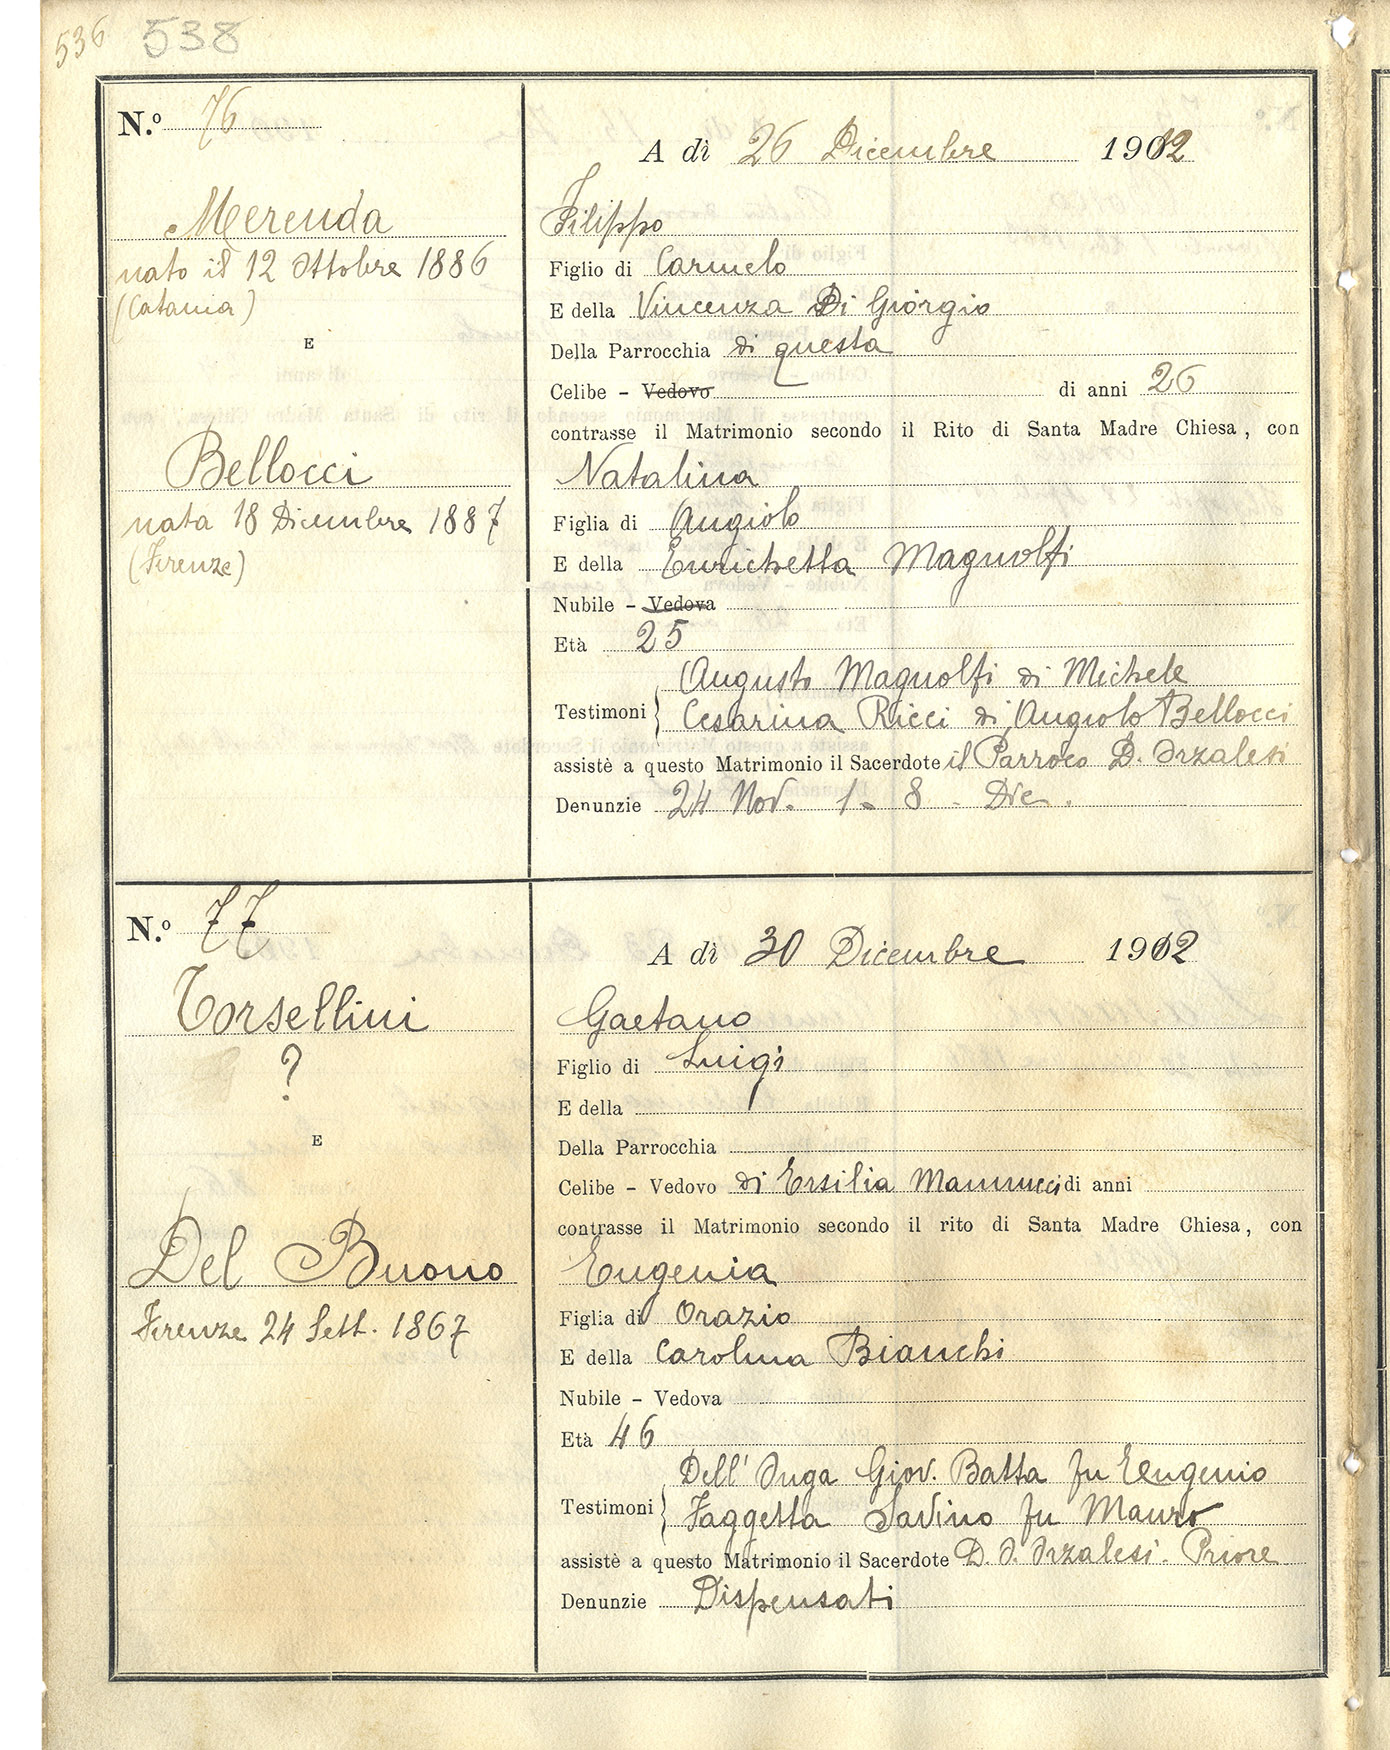 536 538
N.º 76
A dì 26 Dicembre 1912
Merenda
Filippo
nato il 12 Ottobre 1886
Figlio di Carmelo
(Catania)
E della Vincenza Di Giorgio
E
Della Parrocchia di questa
Celibe - Vedovo di anni 26
contrasse il Matrimonio secondo il Rito di Santa Madre Chiesa, con
Bellocci
Natalina
nata 18 Dicembre 1887
Figlia di Angiolo
(Firenze)
E della Enrichetta Magnolfi
Nubile - Vedova
Età 25
Testimoni { Augusto Magnolfi di Michele
Cesarina Ricci di Angiolo Bellocci
assistè a questo Matrimonio il Sacerdote il Parroco D. Orzalesi
Denunzie 24 Nov. 1 - 8 - Dic.
N.º 77
A dì 30 Dicembre 1912
Torsellini
Gaetano
?
Figlio di Luigi
E della
E
Della Parrocchia
Celibe - Vedovo di Ersilia Mannucci di anni
contrasse il Matrimonio secondo il rito di Santa Madre Chiesa, con
Del Buono
Eugenia
Firenze 24 Sett. 1867
Figlia di Orazio
E della Carolina Bianchi
Nubile - Vedova
Età 46
Testimoni { Dell' Giov. Batta fu Eugenio
Faggetta Savino fu Mauro
assistè a questo Matrimonio il Sacerdote D. O. Orzalesi. Priore
Denunzie Dispensati